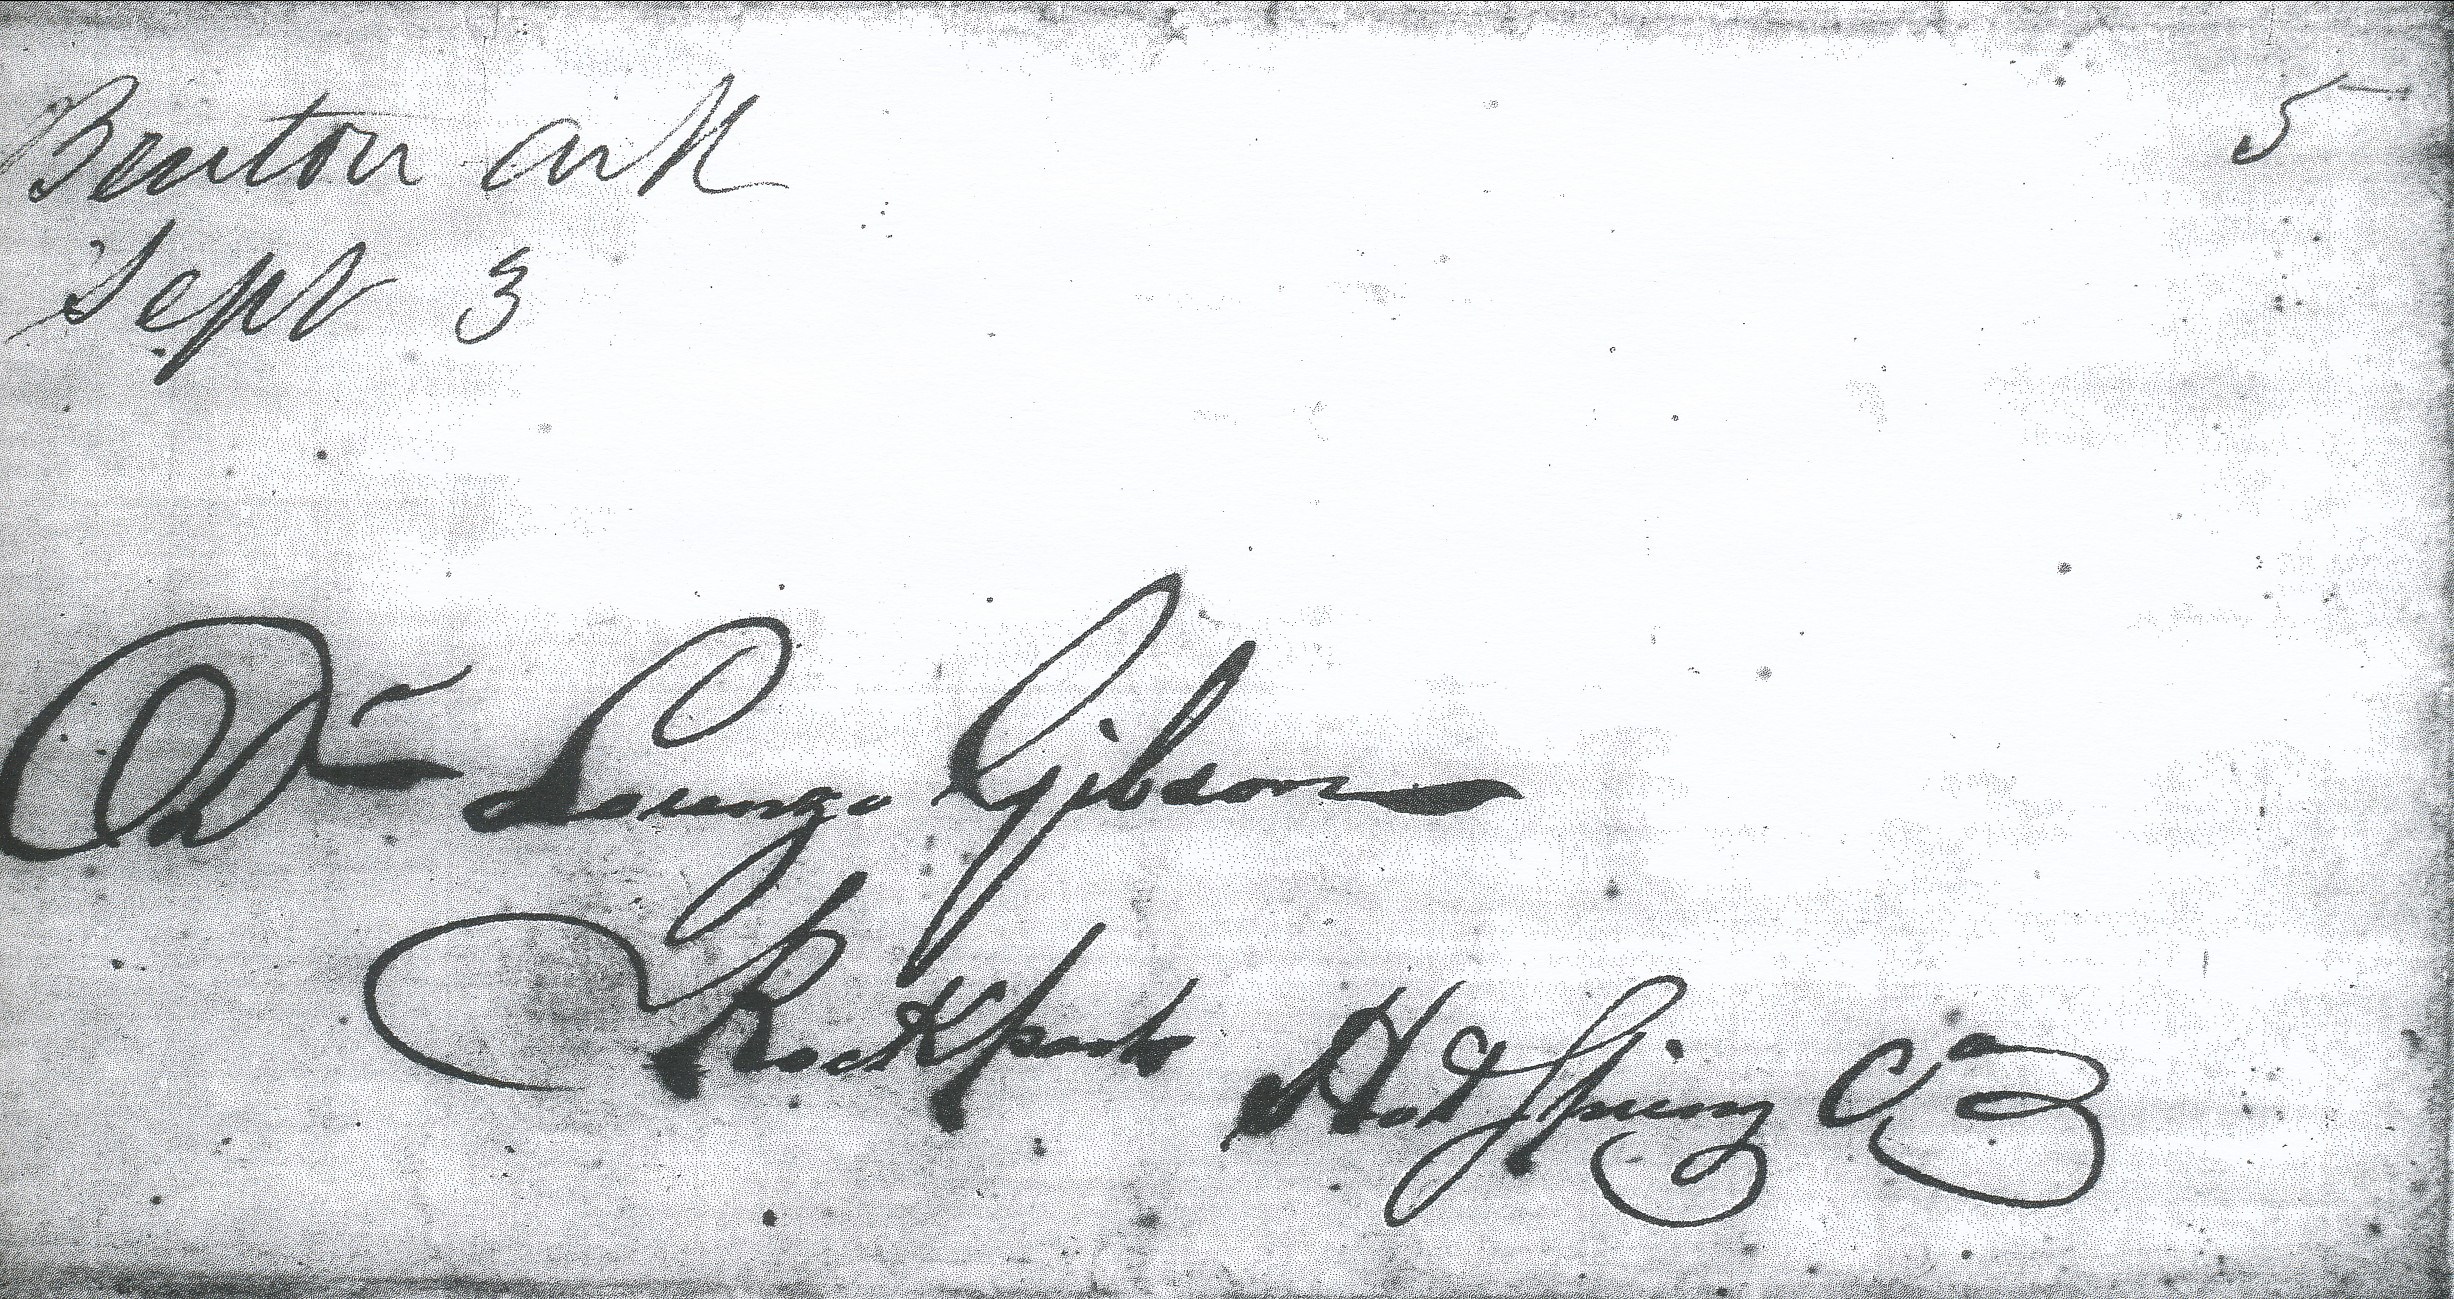 Benton ark 5
Sept 3
Dr Lorenzo Gibson
Rockport Hot Spring Co